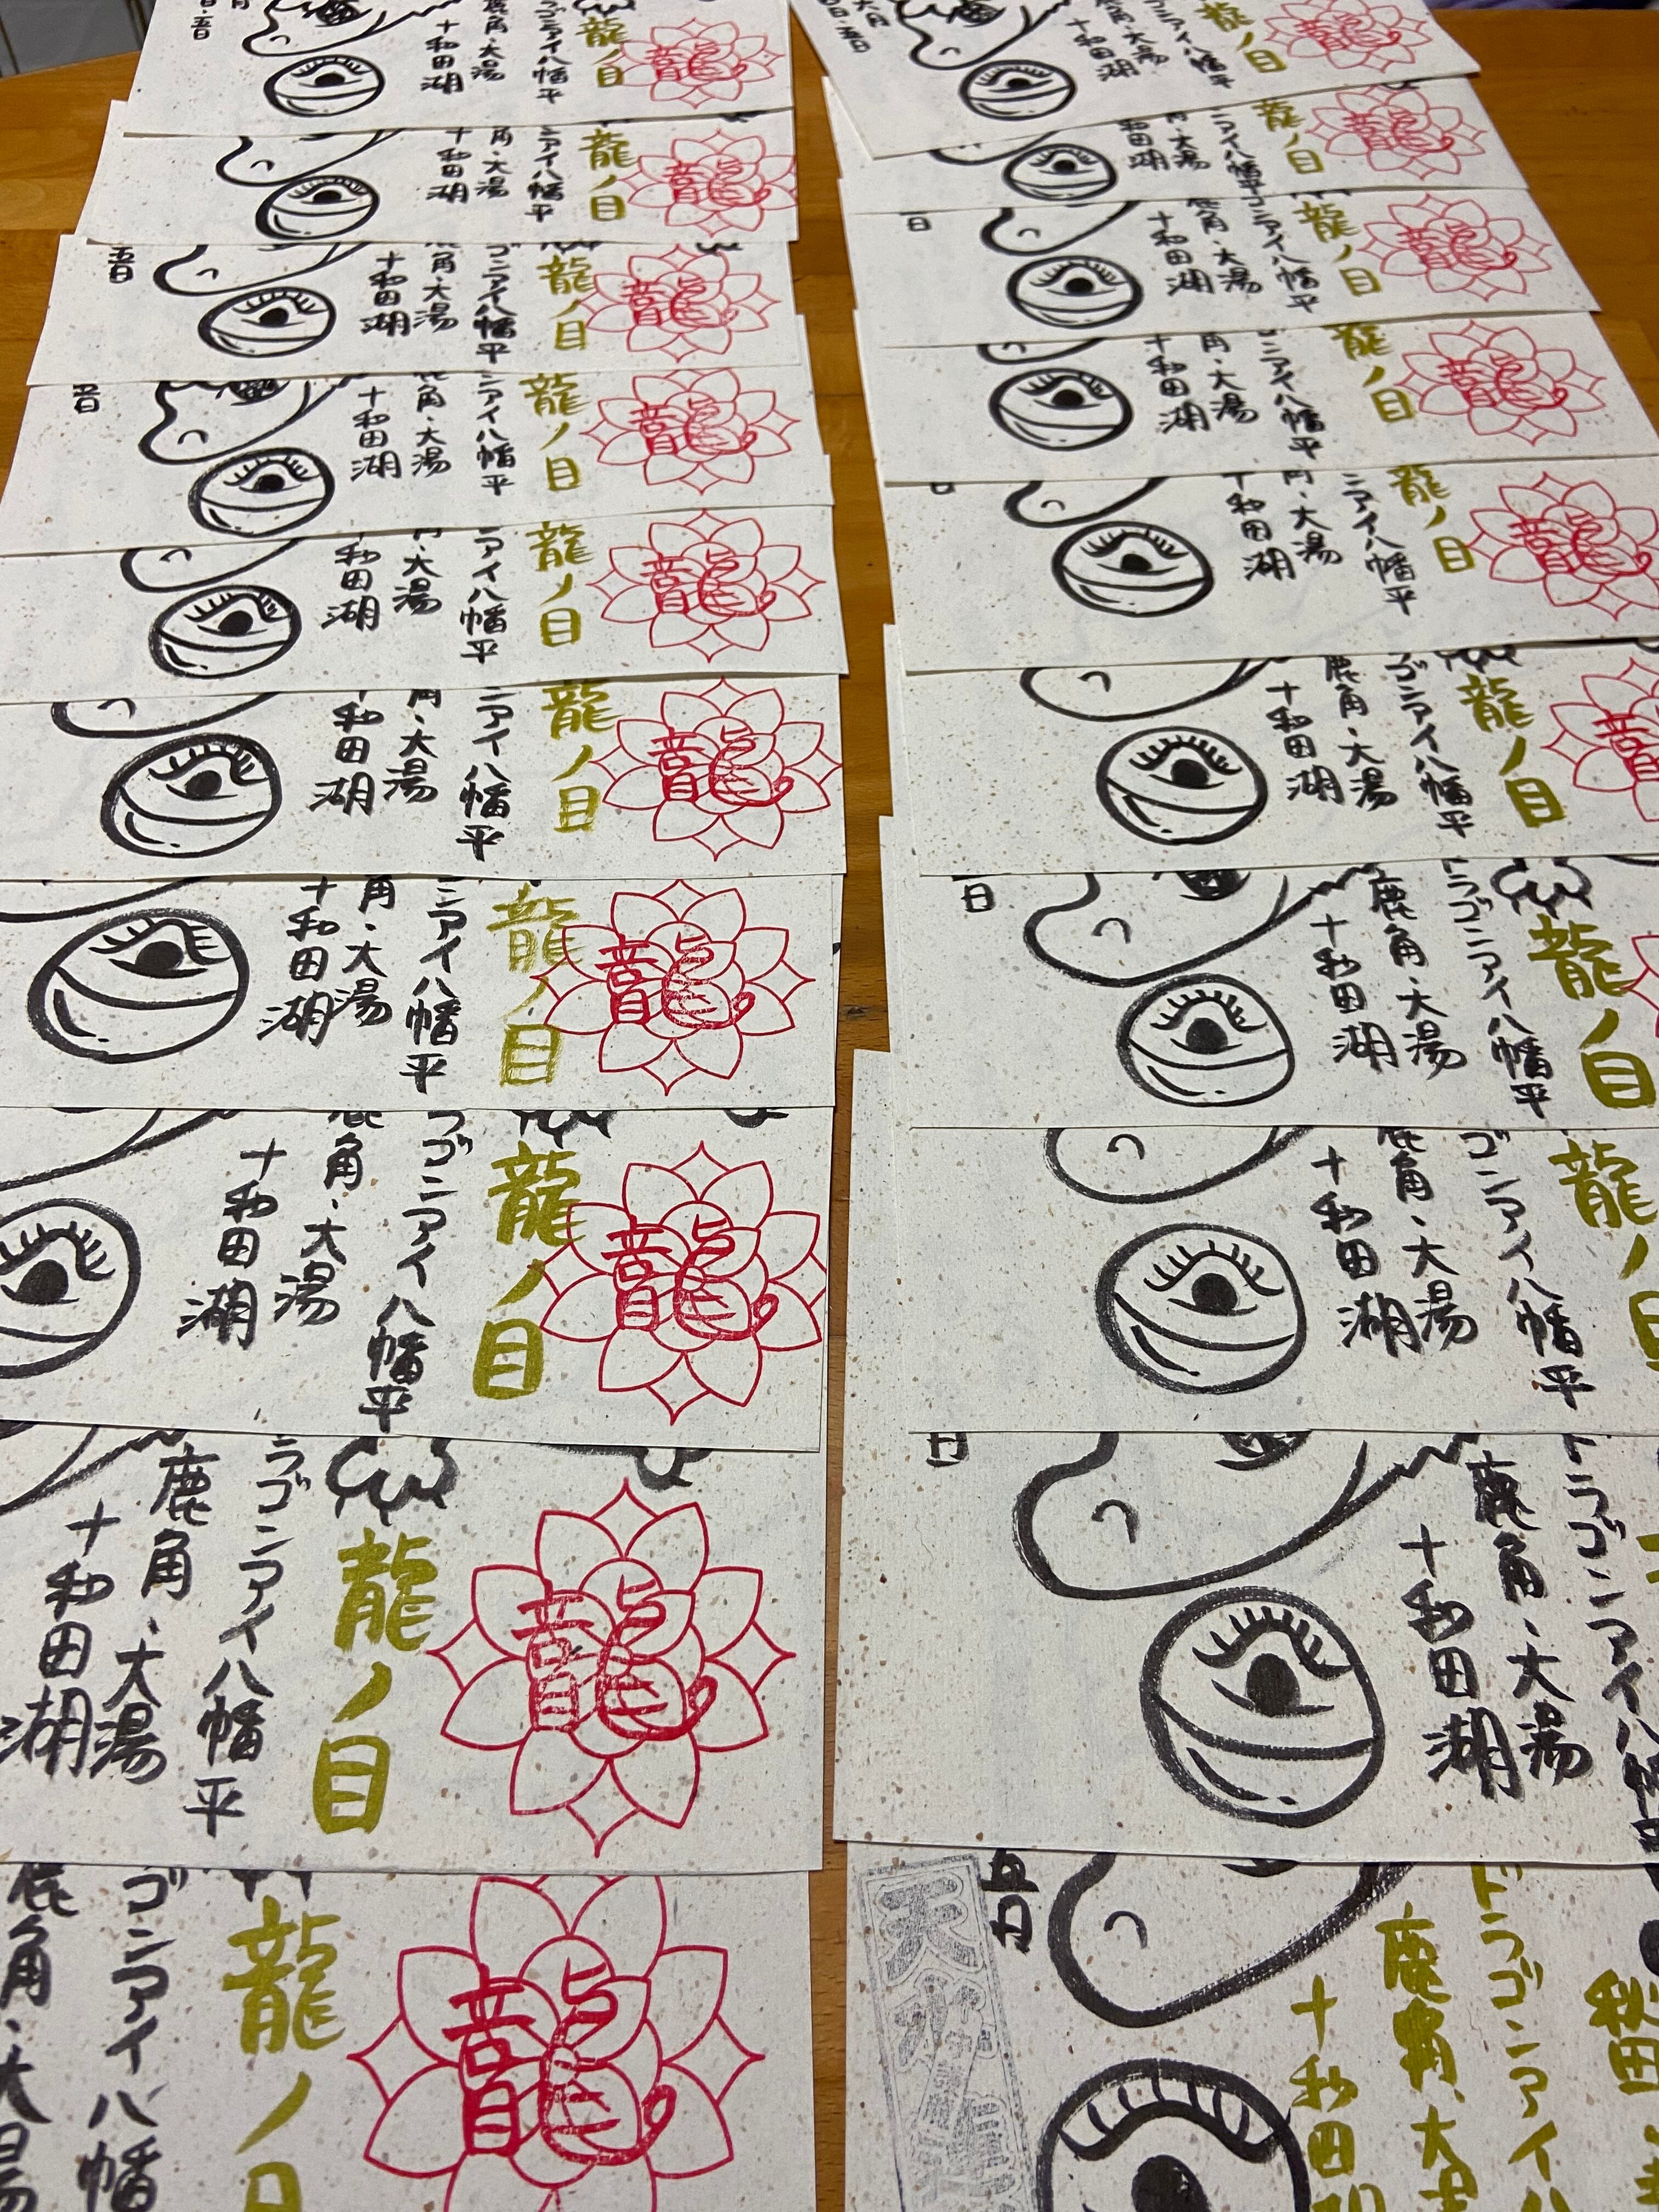 龍
龍ノ目
ゴンアイ八幡平
鹿角・大湯
十和田湖
五日
龍
龍ノ目
ンアイ八幡平
角・大湯
十和田湖
龍
龍ノ目
ゴンアイ八幡平
鹿角・大湯
十和田湖
五日
龍
龍ノ目
ンアイ八幡平
鹿角・大湯
十和田湖
五日
龍
龍ノ目
アイ八幡平
・大湯
和田湖
龍
龍ノ目
ンアイ八幡平
角・大湯
和田湖
龍
龍ノ目
ンアイ八幡平
角・大湯
十和田湖
龍
龍ノ目
ラゴンアイ八幡平
鹿角・大湯
十和田湖
龍
龍ノ目
ラゴンアイ八幡平
鹿角・大湯
十和田湖
龍
龍ノ目
ゴンアイ八幡
鹿角・大湯
龍
龍ノ目
ゴンアイ八幡平
鹿角・大湯
十和田湖
六月
五日
龍
龍ノ目
ンアイ八幡平
角・大湯
和田湖
龍
龍ノ目
ゴンアイ八幡平
鹿角・大湯
十和田湖
日
龍
龍ノ目
ンアイ八幡平
角・大湯
十和田湖
龍
龍ノ目
ンアイ八幡平
角・大湯
十和田湖
龍
龍ノ目
ゴンアイ八幡平
鹿角・大湯
十和田湖
龍ノ目
ドラゴンアイ八幡平
鹿角・大湯
十和田湖
日
龍ノ目
ゴンアイ八幡平
鹿角・大湯
十和田湖
ドラゴンアイ八幡平
鹿角・大湯
十和田湖
日
秋田
ドラゴンアイ八
鹿角・大湯
十和田湖